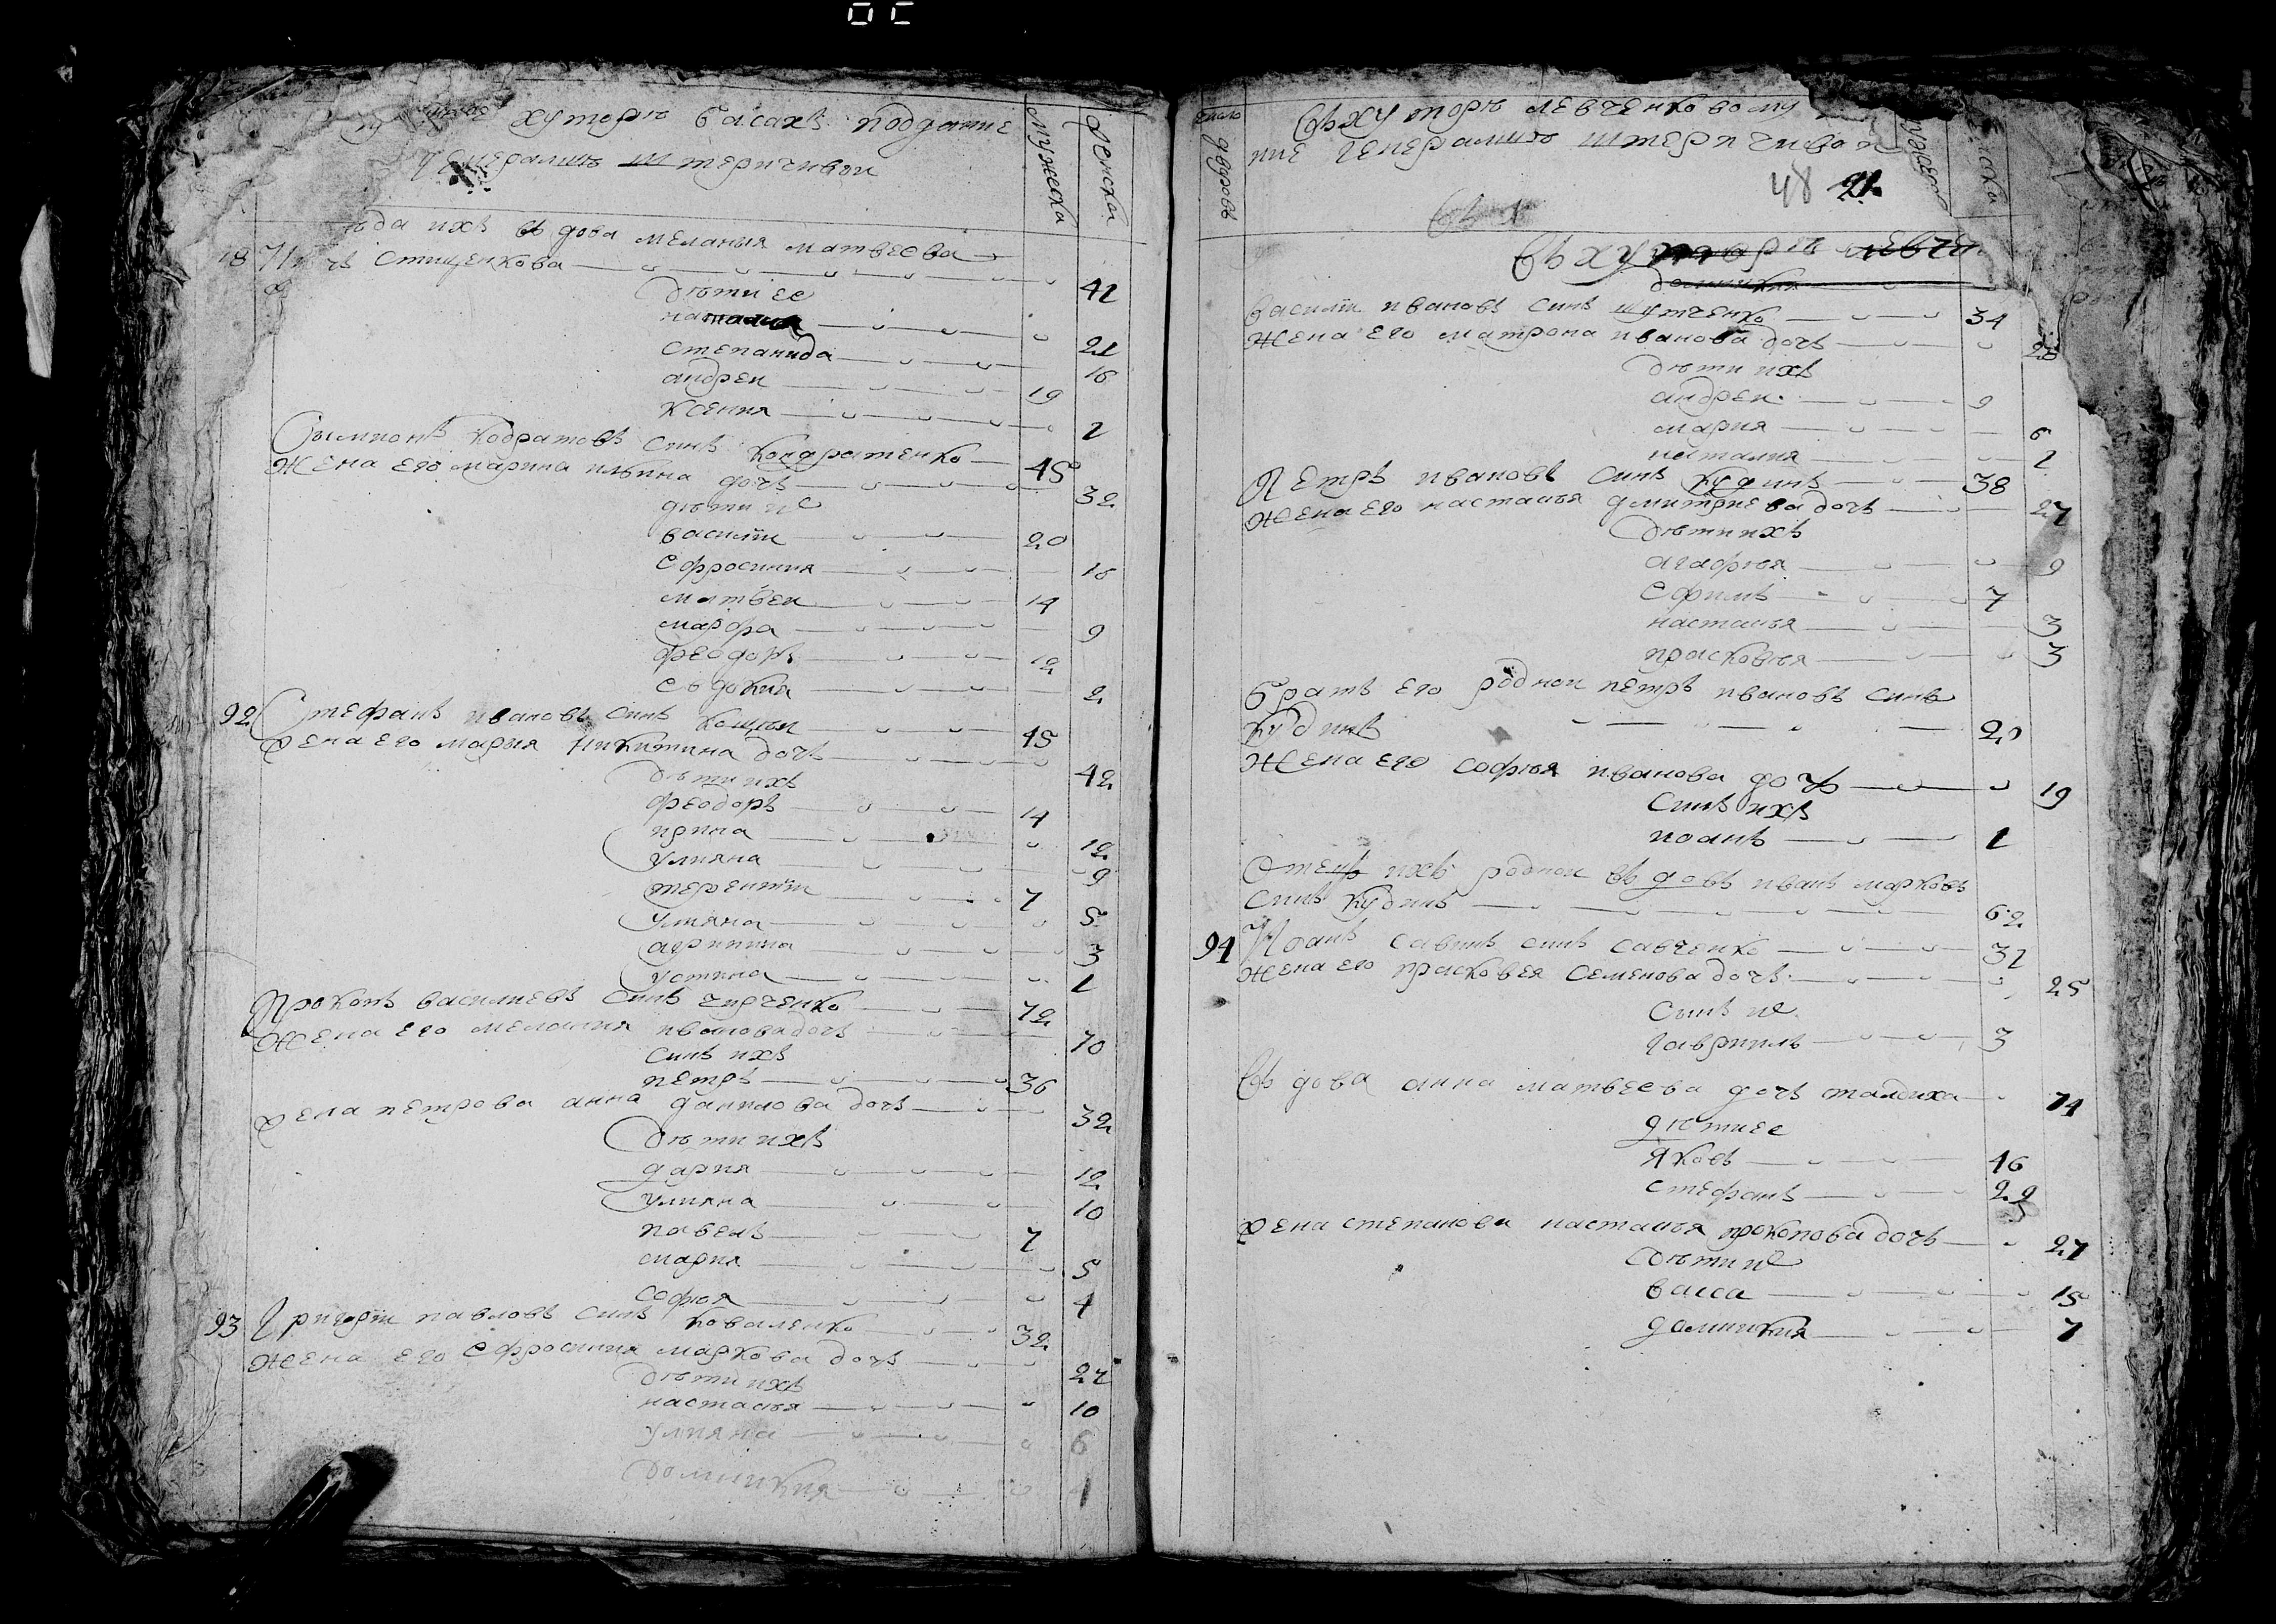 хуторъ басахъ подданние
Генералши штеричивои
мужеска
женска
вдова мелания матвеева
18
дочъ стищенкова 41
дѣти ее
наталия 21
степанида 16
андреи 19
ксения 2
Сымионъ кодратовъ синъ кондратенко 45
жена его марина илъина дочъ 32
дѣти ихъ
василии 20
ефросиния 16
матвеи 14
марфа 9
феодоръ 12
евдокия 2
92 Стефанъ ивановъ синъ 45
жена его мария никитина дочъ 42
дѣти ихъ
феодоръ 14
ирина 12
улияна 9
терентии 7
улияна 5
агрипина 3
устина 1
Прокопъ василиевъ синъ чирченко 72
жена его мелания иванова дочъ 70
синъ ихъ
петръ 36
жена петрова анна данилова дочъ 32
дѣти ихъ
дария 12
улияна 10
павелъ 7
мария 5
софия 4
93 Григории павловъ синъ коваленко 32
жена его ефросиния маркова дочъ 27
дѣти ихъ
настасъя 10
улияна 6
домникия 1
число дворовъ
въ хуторъ левченковому
ние Генералши штеричивои
48 21
въ хуторъ левчен
василии ивановъ синъ шутченко 34
жена его матрона иванова дочъ 28
дѣти ихъ
андреи 9
мария 6
наталия 2
Петръ ивановъ синъ кудинъ 38
жена его настасъя дмитриева дочъ 27
дѣти ихъ
агафъя 9
ефимъ 7
настасъя 3
прасковъя 3
братъ его роднои петръ ивановъ синъ
кудинъ 20
жена его софъя иванова дочъ 19
синъ ихъ
иоанъ 1
Отецъ ихъ роднои вдовъ иванъ марковъ
синъ кудинъ 62
94 Иоанъ савинъ синъ савченко 31
жена его прасковея семенова дочъ 25
синъ ихъ
гавриилъ 3
въдова анна матвеева дочъ талдиха 74
дѣти ее
яковъ 46
стефанъ 29
жена степанова настасъя прокопова дочъ 27
дѣти ихъ
васса 15
домникия 7